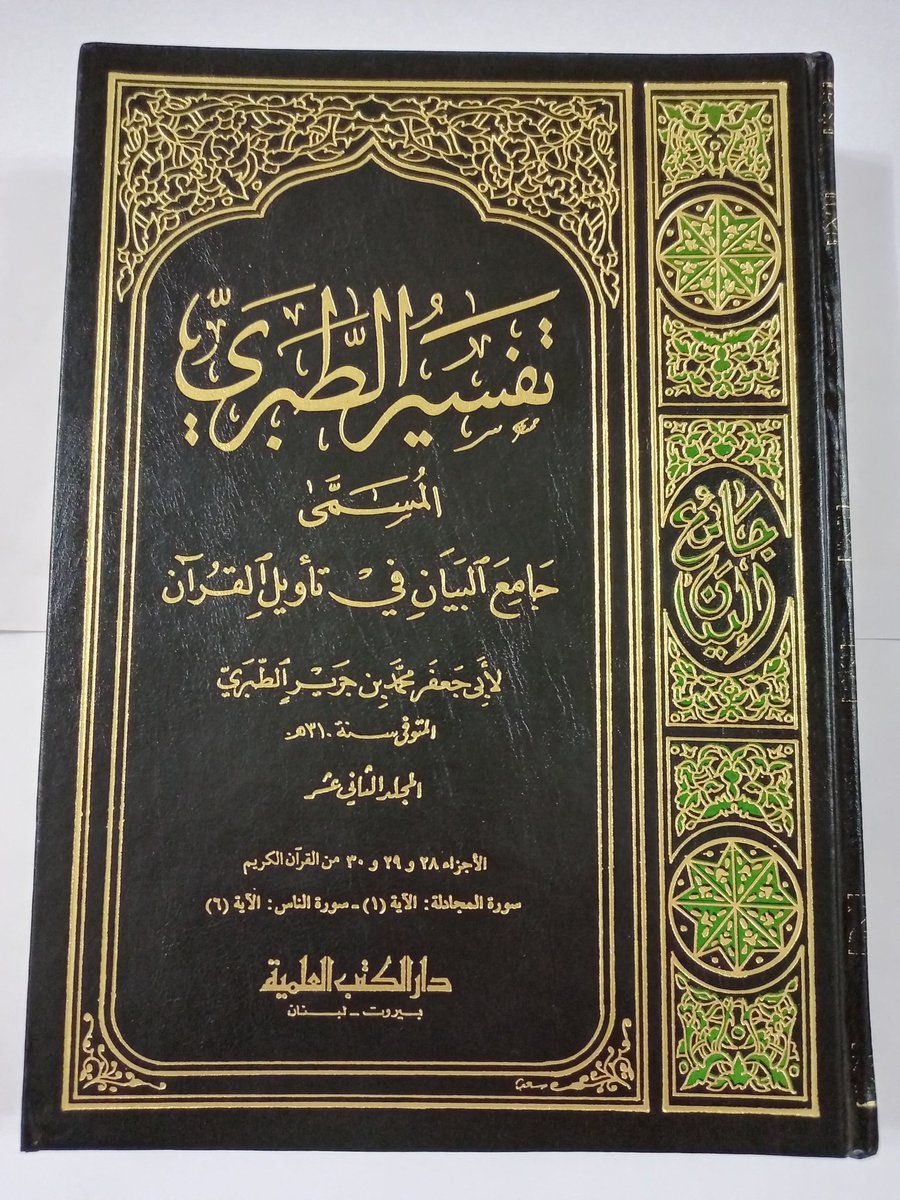 تَفسِيرُ الطَّبَرِيّ
المُسَمَّى
جَامِعَ البَيَانِ فِي تَأويلِ القُرآن
لأَبي جَعفَر محمَّد بن جَريرٍ الطَّبَرِيّ
المتوفى سنة ٣١٠هـ
المجلد الثاني عشر
الأجزاء ٢٨ و ٢٩ و ٣٠ من القرآن الكريم
سورة المجادلة: الآية (١) - سورة الناس: الآية (٦)
دار الكتب العلمية
بيروت - لبنان
جَامِعُ
البَيَان